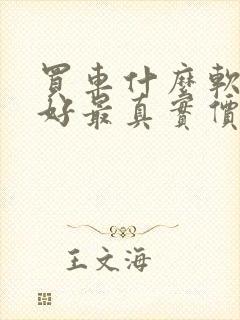 買車什麼軟
好最真實價
王文海